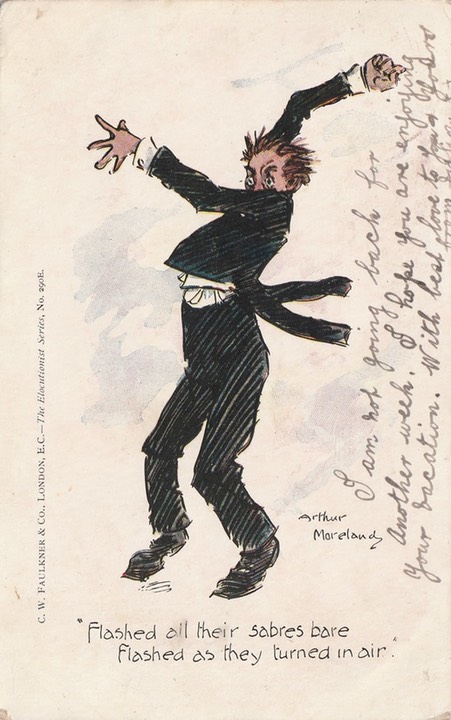 C. W. FAULKNER & CO., LONDON, E.C.—The Elocutionist Series, No. 290E.
I am not going back for
Another week. I hope you are enjoying
Your vacation. With best love to
Arthur
Moreland
"Flashed all their sabres bare
Flashed as they turned in air."